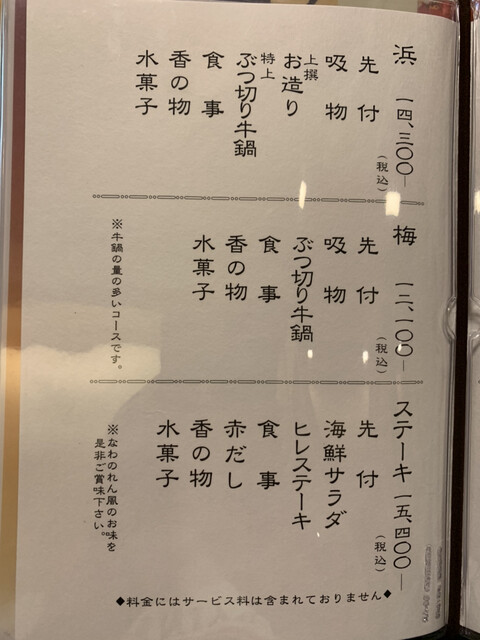 浜 一四、三〇〇―
（税込）
先付
吸物
上撰
お造り
特上
ぶつ切り牛鍋
食事
香の物
水菓子
梅 一二、一〇〇―
（税込）
先付
吸物
ぶつ切り牛鍋
食事
香の物
水菓子
※牛鍋の量の多いコースです。
ステーキ 一五、四〇〇―
（税込）
先付
海鮮サラダ
ヒレステーキ
食事
赤だし
香の物
水菓子
※なわのれん風のお味を
是非ご賞味下さい。
◆料金にはサービス料は含まれておりません◆